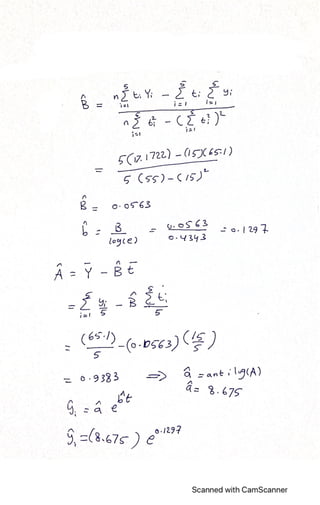 B̂ = n Σ⁵ᵢ₌₁ tᵢ Yᵢ − Σ⁵ᵢ₌₁ tᵢ Σ⁵ᵢ₌₁ yᵢ
n Σ⁵ᵢ₌₁ tᵢ² − (Σ⁵ᵢ₌₁ tᵢ)²
= 5(17.1722) − (15)(65.1)
5 (55) − (15)²
B̂ = 0.0563
b̂ = B̂ / log(e) = 0.0563 / 0.4343 = 0.1297
Â = Ȳ − B̂ t̄
= Σ⁵ᵢ₌₁ yᵢ/5 − B̂ Σ⁵ᵢ₌₁ tᵢ/5
= (65.1)/5 − (0.0563) (15/5)
= 0.9383 ⇒ â = anti log(A)
â = 8.675
ŷᵢ = â e^b̂t
ŷᵢ = (8.675) e^0.1297
Scanned with CamScanner